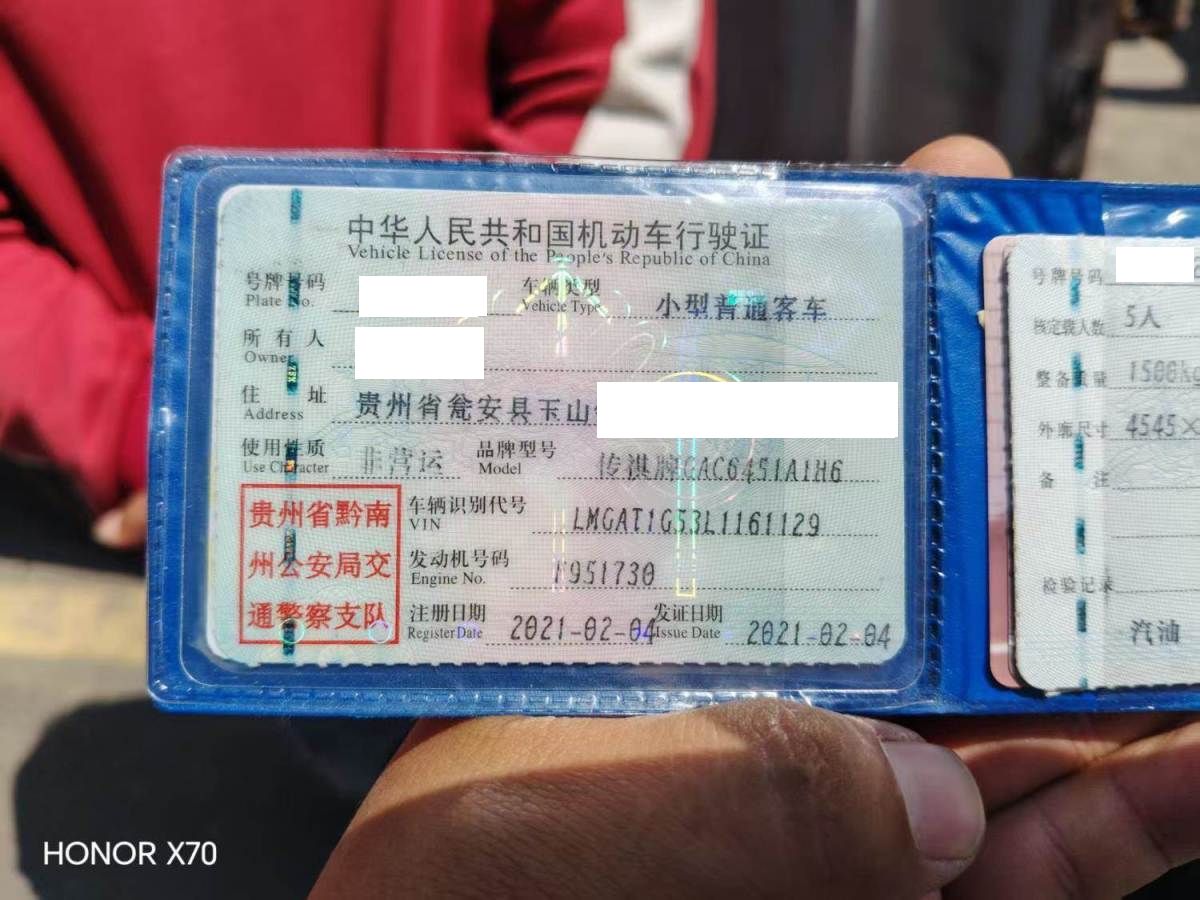 中华人民共和国机动车行驶证
Vehicle License of the People's Republic of China
号牌号码
Plate No.
车辆类型
Vehicle Type
小型普通客车
所有人
Owner
住址
Address
贵州省瓮安县玉山
使用性质
Use Character
非营运
品牌型号
Model
传祺牌GAC6451A1H6
贵州省黔南
州公安局交
通警察支队
车辆识别代号
VIN
LMGAT1G53L1161129
发动机号码
Engine No.
951730
注册日期
Register Date
2021-02-04
发证日期
Issue Date
2021-02-04
号牌号码
核定载人数
5人
整备质量
1500kg
外廓尺寸
4545×
备注
检验记录
汽油
HONOR X70